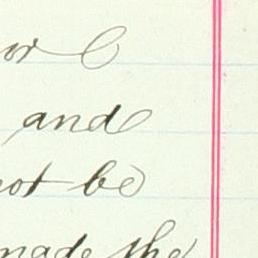 or
and
not be
made the